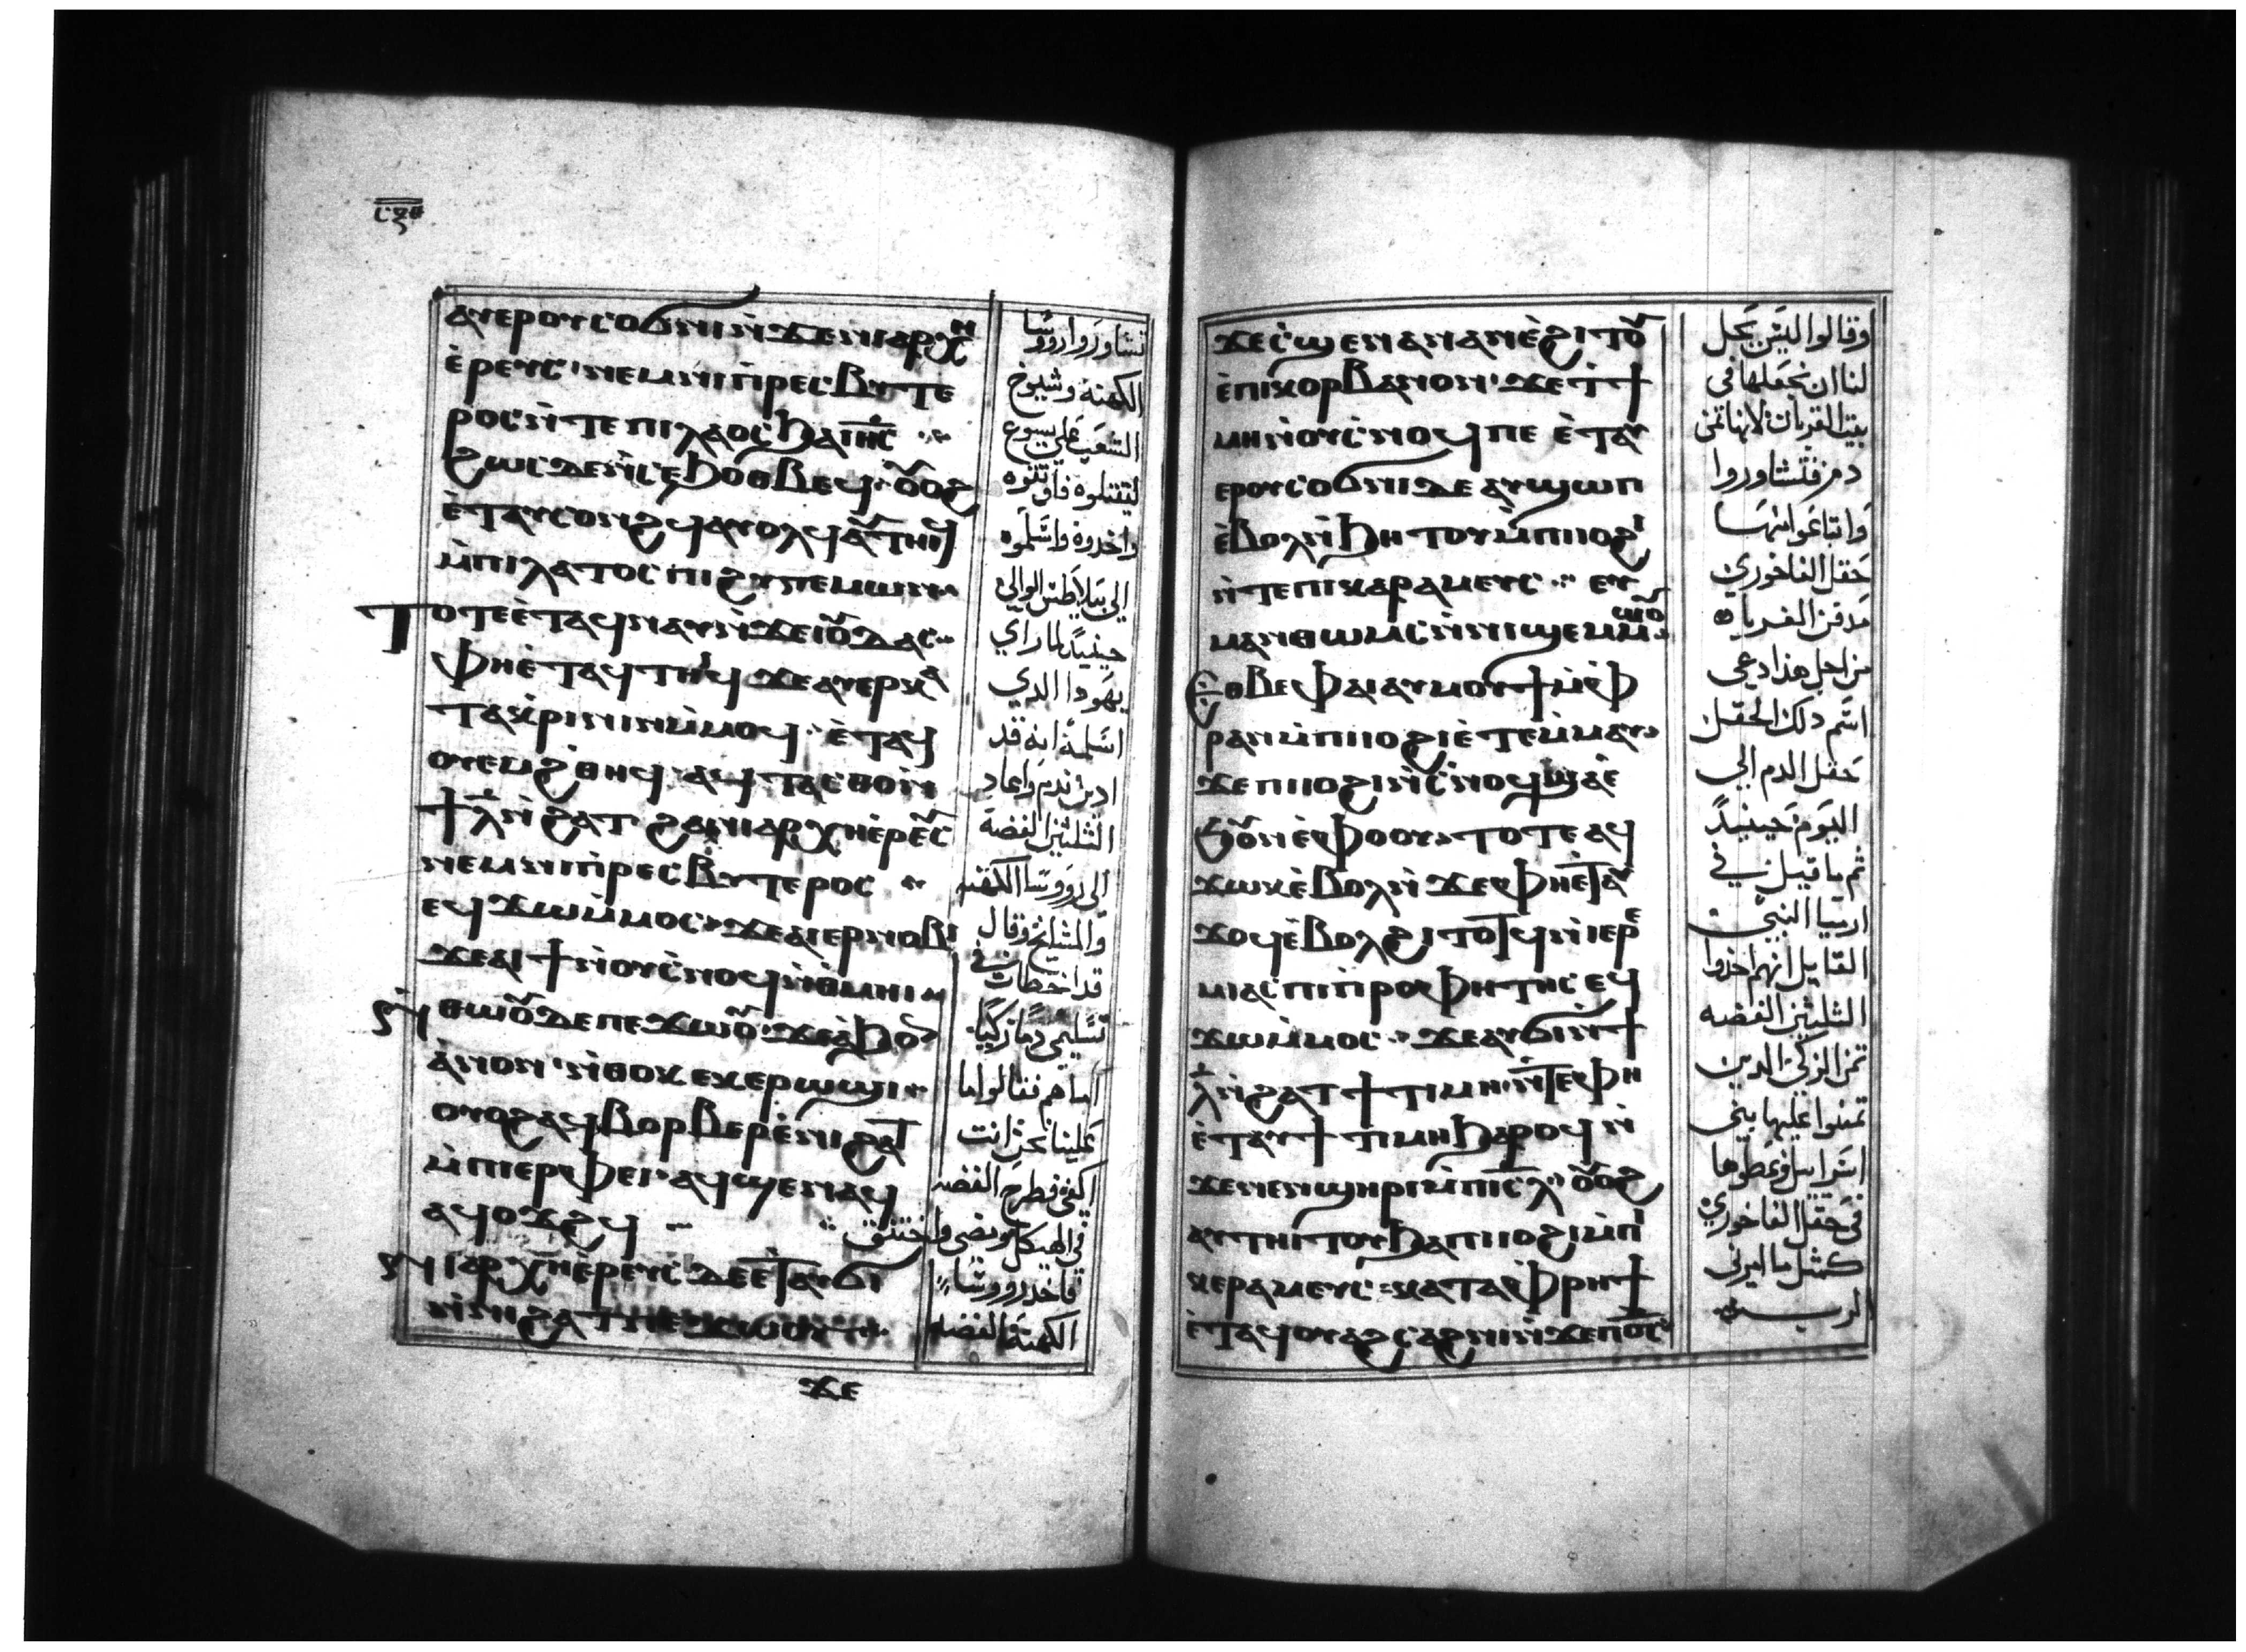 ⲥⲝⲑ
ⲁⲩⲉⲣⲟⲩⲥⲟϭⲛⲓⲛ̀ϫⲉⲛⲓⲁⲣⲭⲏ
ⲉ̀ⲣⲉⲩⲥ ⲛⲉⲙⲛⲓⲡ̀ⲣⲉⲥⲃⲩⲧⲉ
ⲣⲟⲥⲛ̀ⲧⲉⲡⲓⲗⲁⲟⲥϧⲁⲓⲏ̅ⲥ̅
ϩⲱⲥⲇⲉⲛ̀ⲥⲉϧⲟⲑⲃⲉϥ ⲟⲩⲟϩ
ⲉ̀ⲧⲁⲩⲥⲟⲛϩϥⲁⲩⲟⲗϥⲁⲩⲧⲏⲓϥ
ⲙ̀ⲡⲓⲗⲁⲧⲟⲥⲡⲓϩⲩⲅⲉⲙⲱⲛ
ⲧⲟⲧⲉⲉ̀ⲧⲁϥⲛⲁⲩⲛ̀ϫⲉⲓⲟⲩⲇⲁⲥ
ⲫⲏⲉ̀ⲧⲁϥⲧⲏⲓϥ ϫⲉⲁⲩⲉⲣⲕⲁ
ⲧⲁⲕ̀ⲣⲓⲛⲓⲛⲙ̀ⲙⲟϥ ⲉ̀ⲧⲁϥ
ⲟⲩⲉⲙϩ̀ⲑⲏϥ ⲁϥⲧⲁⲥⲑⲟⲛ̀
ϯⲗ̅ⲛ̀ϩⲁⲧ ϩⲁⲛⲓⲁⲣⲭⲏⲉ̀ⲣⲉⲩⲥ
ⲛⲉⲙⲛⲓⲡ̀ⲣⲉⲥⲃⲩⲧⲉⲣⲟⲥ
ⲉϥϫⲱⲙ̀ⲙⲟⲥ ϫⲉⲁⲓⲉⲣⲛⲟⲃⲓ
ϫⲉⲁⲓϯⲛ̀ⲟⲩⲥ̀ⲛⲟϥⲛ̀ⲑ̀ⲙⲏⲓ
ⲛ̀ⲑⲱⲟⲩⲇⲉⲡⲉϫⲱⲟⲩ ϫⲉⲁ̀ϧⲟⲛ
ⲁ̀ⲛⲟⲛ ⲛ̀ⲑⲟⲕⲉⲕⲉⲣⲱϣⲓ
ⲟⲩⲟϩⲁϥⲃⲟⲣⲃⲉⲣⲉ̀ⲛⲓϩⲁⲧ
ⲙ̀ⲡⲓⲉⲣⲫⲉⲓ ⲁϥϣⲉⲛⲁϥ
ⲁϥⲟϫϩϥ
ⲛⲓⲁⲣⲭⲏⲉ̀ⲣⲉⲩⲥ ⲇⲉⲉ̀ⲧⲁⲩϭⲓ
ⲛ̀ⲛⲓϩⲁⲧⲡⲉϫⲱⲟⲩ
ϫⲉ
تشاوروا رووسا
الكهنة وشيوخ
الشعب علي يسوع
ليقتلوه فاوثقوه
واخدوه واسلموه
الي بيلاطس الوالي
حينيدٍ لما راي
يهودا الدي
اسلمه انه قد
ادين ندم واعاد
الثلثين الفضه
الي رووسا الكهنه
والمشايخ وقال
قد اخطات في
تسليمي دمًا زكيًا
اما هم فقالوا ما
علينا نحن انت
اكفي فطرح الفضه
في الهيكل ومضي واختنق
فاخد رووسا
الكهنة الفضه
ϫⲉⲥ̀ϣⲉⲛⲁⲛⲁⲛⲉ̀ϩⲓⲧⲟⲩ
ⲉ̀ⲡⲓⲕⲟⲣⲃⲁⲛⲟⲛ ϫⲉⲧ̀ϯ
ⲙⲏⲛ̀ⲟⲩⲥ̀ⲛⲟϥⲡⲉ ⲉ̀ⲧⲁⲩ
ⲉⲣⲟⲩⲥⲟϭⲛⲓⲇⲉⲁⲩϣⲱⲡ
ⲉ̀ⲃⲟⲗⲛ̀ϧⲏⲧⲟⲩⲙ̀ⲡⲓⲓⲟϩⲓ
ⲛ̀ⲧⲉⲡⲓⲕⲁⲣⲁⲙⲉⲩⲥ ⲉⲩ
ⲙⲁⲛⲑⲱⲙⲥⲛ̀ⲛⲓϣⲉⲙⲙⲱⲟⲩ
ⲉⲑⲃⲉⲫⲁⲓⲁⲩⲙⲟⲩϯⲙ̀ⲫ̀
ⲣⲁⲛⲙ̀ⲡⲓⲓⲟϩⲓⲉ̀ⲧⲉⲙ̀ⲙⲁⲩ
ϫⲉⲡⲓⲓⲟϩⲓⲛ̀ⲥ̀ⲛⲟϥϣⲁⲉ̀
ϧⲟⲩⲛⲉ̀ⲫⲟⲟⲩ ⲧⲟⲧⲉⲁϥ
ϫⲱⲕⲉ̀ⲃⲟⲗⲛ̀ϫⲉⲫⲏⲉ̀ⲧⲁⲩ
ϫⲟϥⲉ̀ⲃⲟⲗϩⲓⲧⲟⲧϥⲛ̀ⲓⲉⲣⲉ
ⲙⲓⲁⲥⲡⲓⲡ̀ⲣⲟⲫⲏⲧⲏⲥ ⲉϥ
ϫⲱⲙ̀ⲙⲟⲥ ϫⲉⲁⲩϭⲓⲛ̀ϯ
ⲗ̅ⲛ̀ϩⲁⲧ ϯⲧⲓⲙⲏ ⲛ̀ⲧⲉⲫⲏ
ⲉ̀ⲧⲁⲩϯⲧⲓⲙⲏϧⲁⲣⲟϥⲛ̀
ϫⲉⲛⲉⲛϣⲏⲣⲓⲙ̀ⲡⲓⲥ̅ⲗ̅ ⲟⲩⲟϩ
ⲁⲩⲧⲏⲓⲧⲟⲩϧⲁⲡⲓⲓⲟϩⲓⲙ̀ⲡⲓ
ⲕⲉⲣⲁⲙⲉⲩⲥ ⲕⲁⲧⲁⲫ̀ⲣⲏϯ
ⲉ̀ⲧⲁϥⲟⲩⲁϩⲥⲁϩⲛⲓⲛ̀ϫⲉⲡⲟ̅ⲥ̅
وقالوا ليس يحل
لنا ان نجعلها في
بيت القربان لانها ثمن
دم فتشاوروا
وابتاعوا منها
حقل الفاخوري
مدفن الغرباه
من اجل هذا دعي
اسم دلك الحقل
حقل الدم الي
اليوم حينيدٍ
ثم ما قيل في
ارميا النبي
القايل انهم اخدوا
الثلثين الفضه
ثمن الزكي الدين
ثمنوا عليها بني
اسراييل وعطوها
في حقل الفاخوري
كمثل ما امرني
الرب